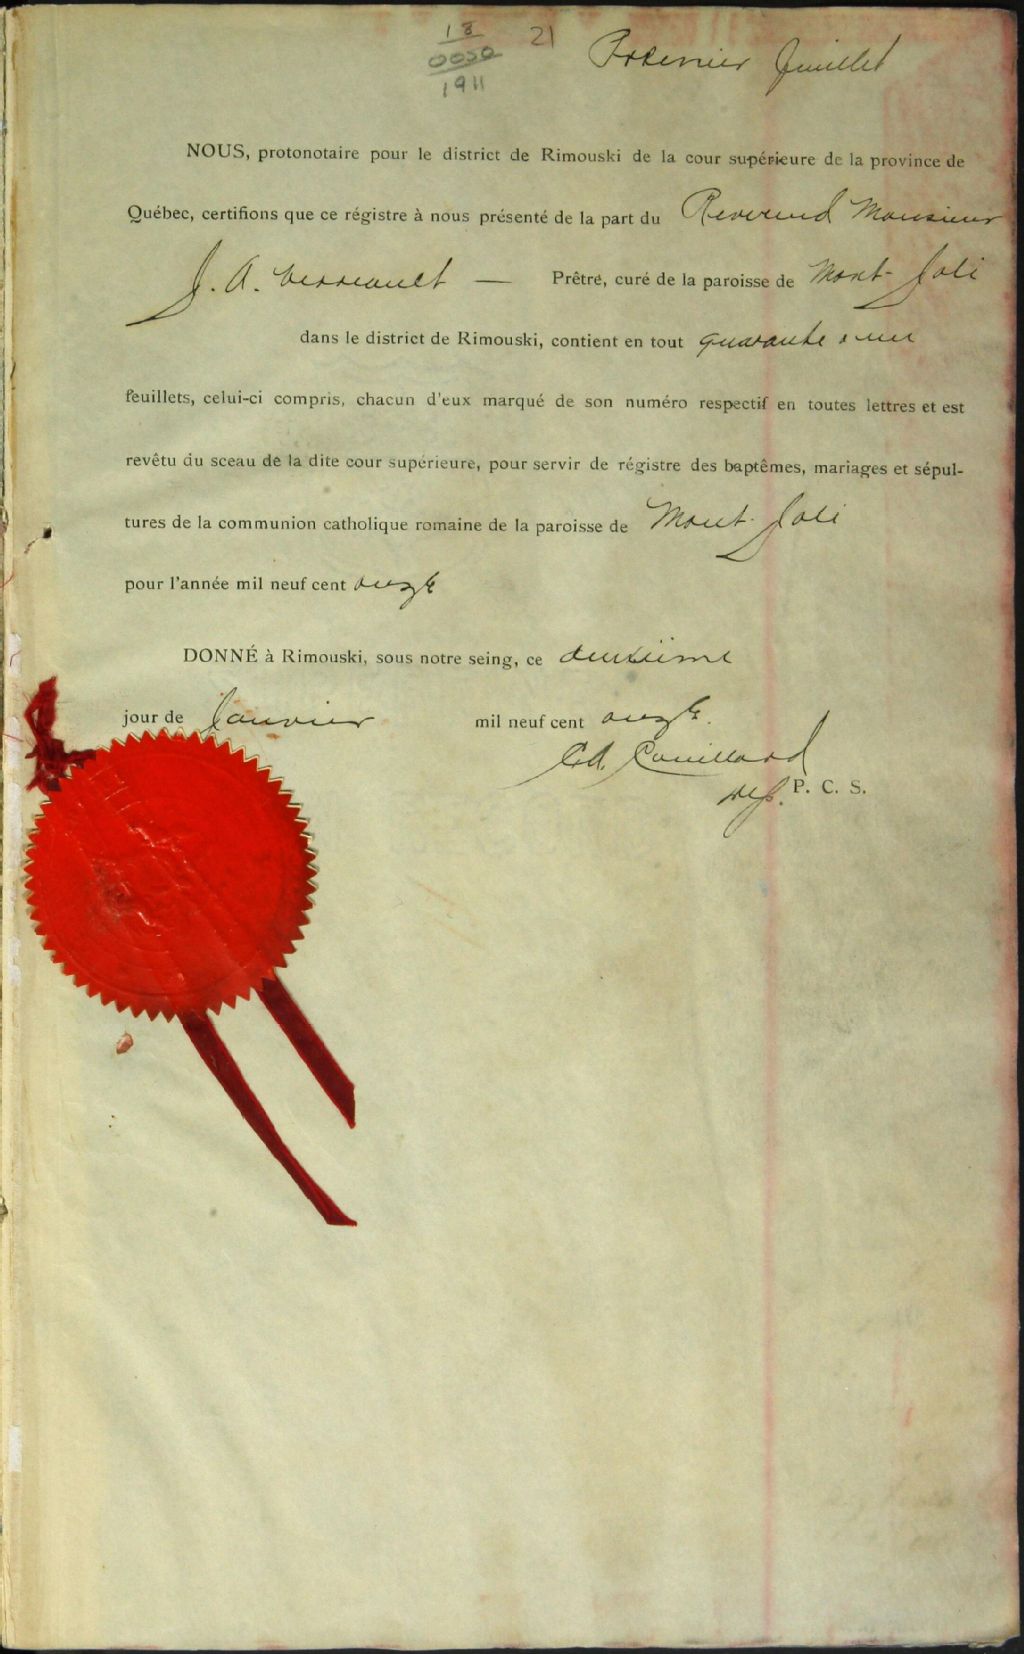 18
0050
1911
21
Premier feuillet
NOUS, protonotaire pour le district de Rimouski de la cour supérieure de la province de
Québec, certifions que ce régistre à nous présenté de la part du Reverend Monsieur
J. A. Verreault — Prêtre, curé de la paroisse de Mont-Joli
dans le district de Rimouski, contient en tout quarante & un
feuillets, celui-ci compris, chacun d'eux marqué de son numéro respectif en toutes lettres et est
revêtu du sceau de la dite cour supérieure, pour servir de régistre des baptêmes, mariages et sépul-
tures de la communion catholique romaine de la paroisse de Mont-Joli
pour l'année mil neuf cent onze
DONNÉ à Rimouski, sous notre seing, ce deuxième
jour de Janvier mil neuf cent onze.
Couillard
Dep. P. C. S.